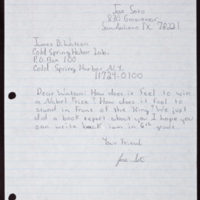 Jose Soto
San Antonio TX 78221
James B. Watson
Cold Spring Harbor Lab.
P.O. Box 100
Cold Spring Harbor N.Y.
11724-0100
Dear Watson: How does it feel to win
a Nobel Prize? How does it feel to
stand in front of the King? We just
did a book report about you I hope you
can write back I am in 6th grade.
Your Friend